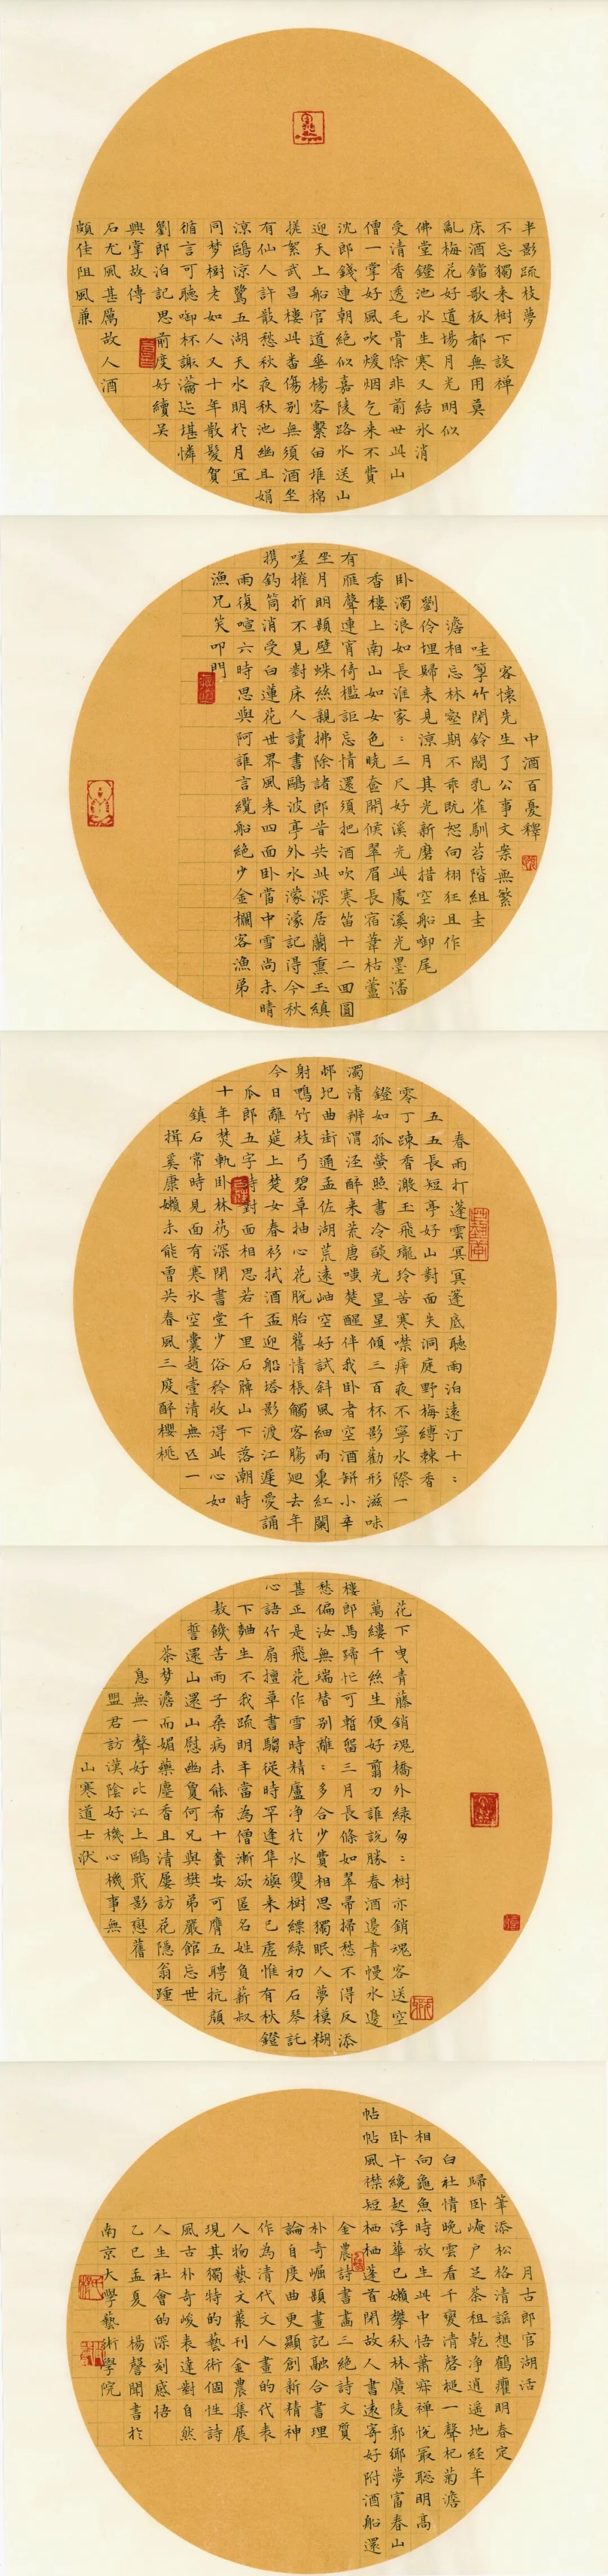 半影疏枝夢
不忘獨来樹下談禅
床酒鐺歌板都無用莫
亂梅花好道場月光明似
佛堂鐙池水生寒又結冰消
受清香透毛骨除非前世此山
僧一掌好風吹煖烟乞来不賞
沈郎錢連朝絶似嘉陵路水送山
迎天上船官道垂楊客繫白堆棉
搓絮武昌樓此番傷別無須酒坐
有仙人許散愁秋夜秋池幽且娟
涼鷗涼鷺五湖天水明於月宜
同梦樹老如人又十年散髮賀
循言可聽啣杯謝瀹迹堪憐
劉郎泊記思前度好續吴
興掌故傳
石尤風甚厲故人酒
頗佳阻風兼
中酒百憂釋
客懷先生了公事文案無繁
哇箰竹閉鈴閣乳雀馴苔階組圭
澹相忘林壑期不乖既恕向栩狂且作
劉伶埋歸来見凉月其光新磨措空船啣尾
卧濁浪如長淮家：三尺好溪光此處溪光墨瀋
香樓上南山如女色曉奩開候翠眉長宿葦枯蘆
有雁聲連宵倚檻詎忘情還須把酒吹寒笛十二回圓
坐月明顥壁蛛絲親拂除諸郎昔共此深居蘭熏玉縝
嗟摧折不見對床人讀書鷗波亭外水濛濛記得今秋
携釣筒消受白蓮花世界風来四面卧當中雪尚未晴
雨復喧六時思與阿誰言纜船絶少金欄客漁弟
漁兄笑叩門
春雨打蓬雲冥冥蓬底聽雨泊遠汀十：
五五長短亭好山對面失洞庭野梅縛棘香
零丁踈香漱玉飛瓏玲苦寒噤痒夜不寧水際一
鐙如孤螢照書冷燄光星星傾三百杯影勸形滋味
濁清辨渭泾醉来荒唐嗤楚醒伴我卧者空酒缾小辛
邨圯曲街通孟佐湖荒遠岫空好試斜風細雨裏紅闌
射鴨竹枝弓碧草抽心花脱胎舊情棖觸客腸廻去年
今日離筵上楚女春衫拭酒盃迎船塔影渡江遲愛誦
瓜郎五字詩對面相思若千里石牌山下落潮時
十年焚軌卧林扔深閉書堂少俗矜收得此心如
鎮石常時見面有寒冰空囊趙壹清無匹一
揖奚康嬾未能曾共春風三度醉櫻桃
花下曳青藤銷魂橋外緑匆：樹亦銷魂客送空
萬縷千絲生便好剪刀誰說勝春酒邊青慢水邊
樓郎馬蹄忙可暫留三月長條如翠帚掃愁不得反添
愁偏汝無端替别離：多合少賞相思獨眠人夢模糊
甚正是飛花作雪時精廬净於水雙樹縹緑初石琴託
心語竹扇擅草書騶從時罕逢隼旟来已虚惟有秋鐙
下麯生不我疏明年當為僧漸欲匿名姓負薪叔
敖饑苦雨子桑病未能希十賚安可膺五聘抗顔
誓還山還山慰幽夐何兄與樊弟嚴館忘世
茶梦澹而媚藥塵香且清屢訪花隱翁踵
息無一聲好比江上鷗戢影戀舊
盟君訪漢陰好機心機事無
山寒道士汱
月古郎官湖活
筆添松格清謡想鶴癯明春定
歸卧崦户足茶租乾净逍遥地経年
白社情晚雲看千變清磬槌一聲杞菊澹
相向龜魚時放生此中悟蕭寀禅悅最聡明高
卧午纔起浮華已嬾攀秋林廣陵郭鄉夢富春山
帖帖風襟短栖栖蓬首閉故人書遠寄好附酒船還
金農詩書畫三絶詩文質
朴奇崛題畫記融合書理
論自度曲更顯創新精神
作為清代文人畫的代表
人物藝文叢刊金農集展
現其獨特的藝術個性詩
風古朴奇峻表達對自然
人生社會的深刻感悟
乙巳孟夏楊聲閑書於
南京大學藝術學院